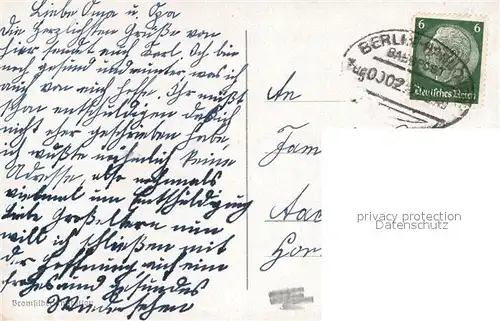 Liebe Oma u. Opa
die Herzlichsten Grüße von
hier sendet euch Karl. Ich bin
noch gesund und munter was ich
auch von euch hoffe. Ihr müßt
schon entschuldigen daß ich
nicht eher geschrieben habe,
ich wußte nähmlich keine
Adresse, also nochmals
vielmal um Entschuldigung
Liebe Großeltern nun
will ich schließen mit
der Hoffnung auf eine
frohes und Gesundes
Wiedersehen
Bromsilber
An
Fam
Aa
6
6
Deutsches Reich
BERLIN
BAHNPOST
Zug
privacy protection
Datenschutz